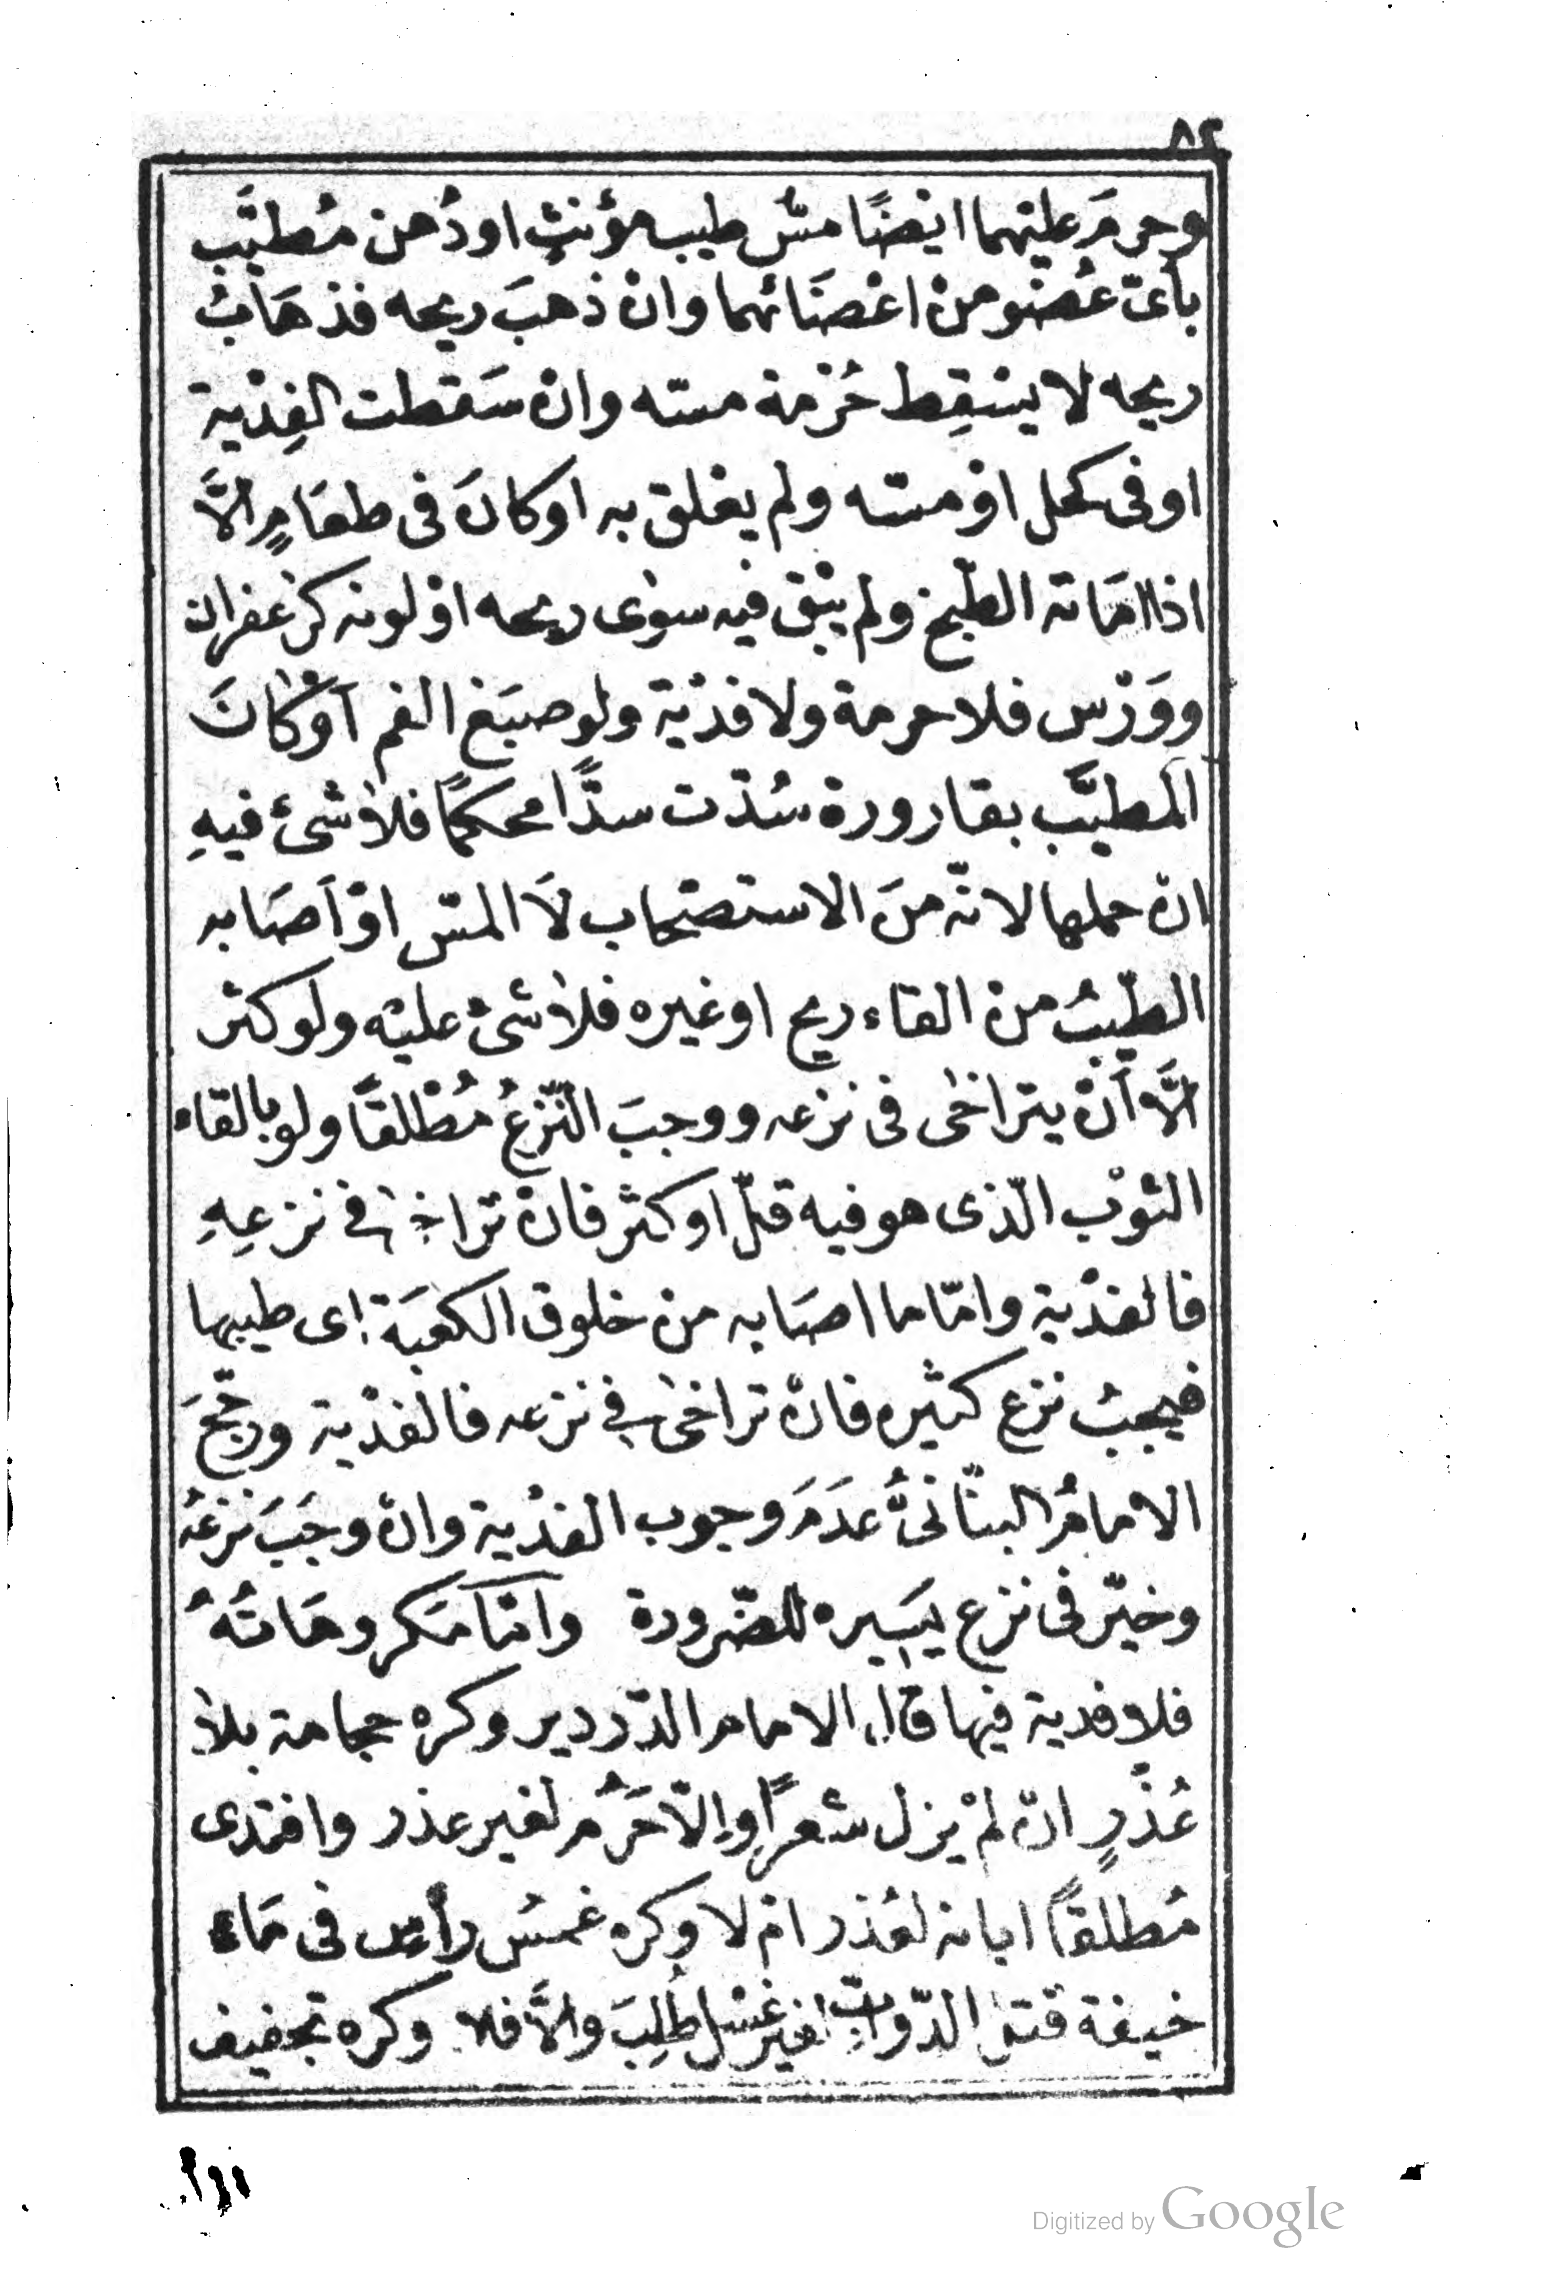 ٨٢
وحرمَ عليْهما ايْضًا مسّ طيب مؤنثٍ او دُهن مُطيَّب
بأىّ عُضْو منْ اعْضَائهما وانْ ذهبَ ريحه فذهَابُ
ريحه لا يسْقِط حُرْمة مسّه وانْ سَقطت الفِدْية
او فى كحل اوْ مسّه ولم يعْلق به او كانَ فى طعَامٍ الاَّ
اذا امَاته الطّبخ ولم يبْق فيه سوٰى ريحه اوْ لونه كزعْفران
ووَرْس فلا حرمة ولا فدْية ولو صبَغ الفم اَوْ كانَ
المُطيَّب بقارورة سُدّت سدًّا محكمًا فلاٰ شئ فيهِ
انْ حملها لانّه منَ الاستصْحاب لاَ المسّ اوْ اَصَابه
الطّيبُ منْ القاء ريح او غيره فلاٰ شئ عليْه ولو كثر
الاَّ اَنْ يتراخٰى فى نزعه ووجبَ النّزْعُ مُطْلقًا ولو بالقاء
الثوْب الّذى هو فيه قلّ او كثر فانْ تراخٰى فى نزعِهِ
فالفدْية وامّا ما اصَابه منْ خلوق الكعْبَة اى طيبها
فيجبُ نزع كثيره فانْ تراخٰى فى نزعه فالفدْية ورجّحَ
الامامُ البنّانىُّ عدَمَ وجوب الفدْية وانْ وجَبَ نزْعُهُ
وخيّر فى نزع يسَيره للضّرورة وامّا مَكروهَاتُهُ
فلا فدية فيها قال الامام الدّردير وكره حجامة بلاٰ
عُذْرٍ انْ لمْ يزل شعرًا وإلاّ حَرُمَ لغير عذر وافتدى
مُطلقًا ابانه لعُذر امْ لا وكره غمسُ رأسٍ فى مَاء
خيفة قتل الدّوابّ لغير غسْل طُلِبَ والاَّ فلا وكره تجفيف
Digitized by Google